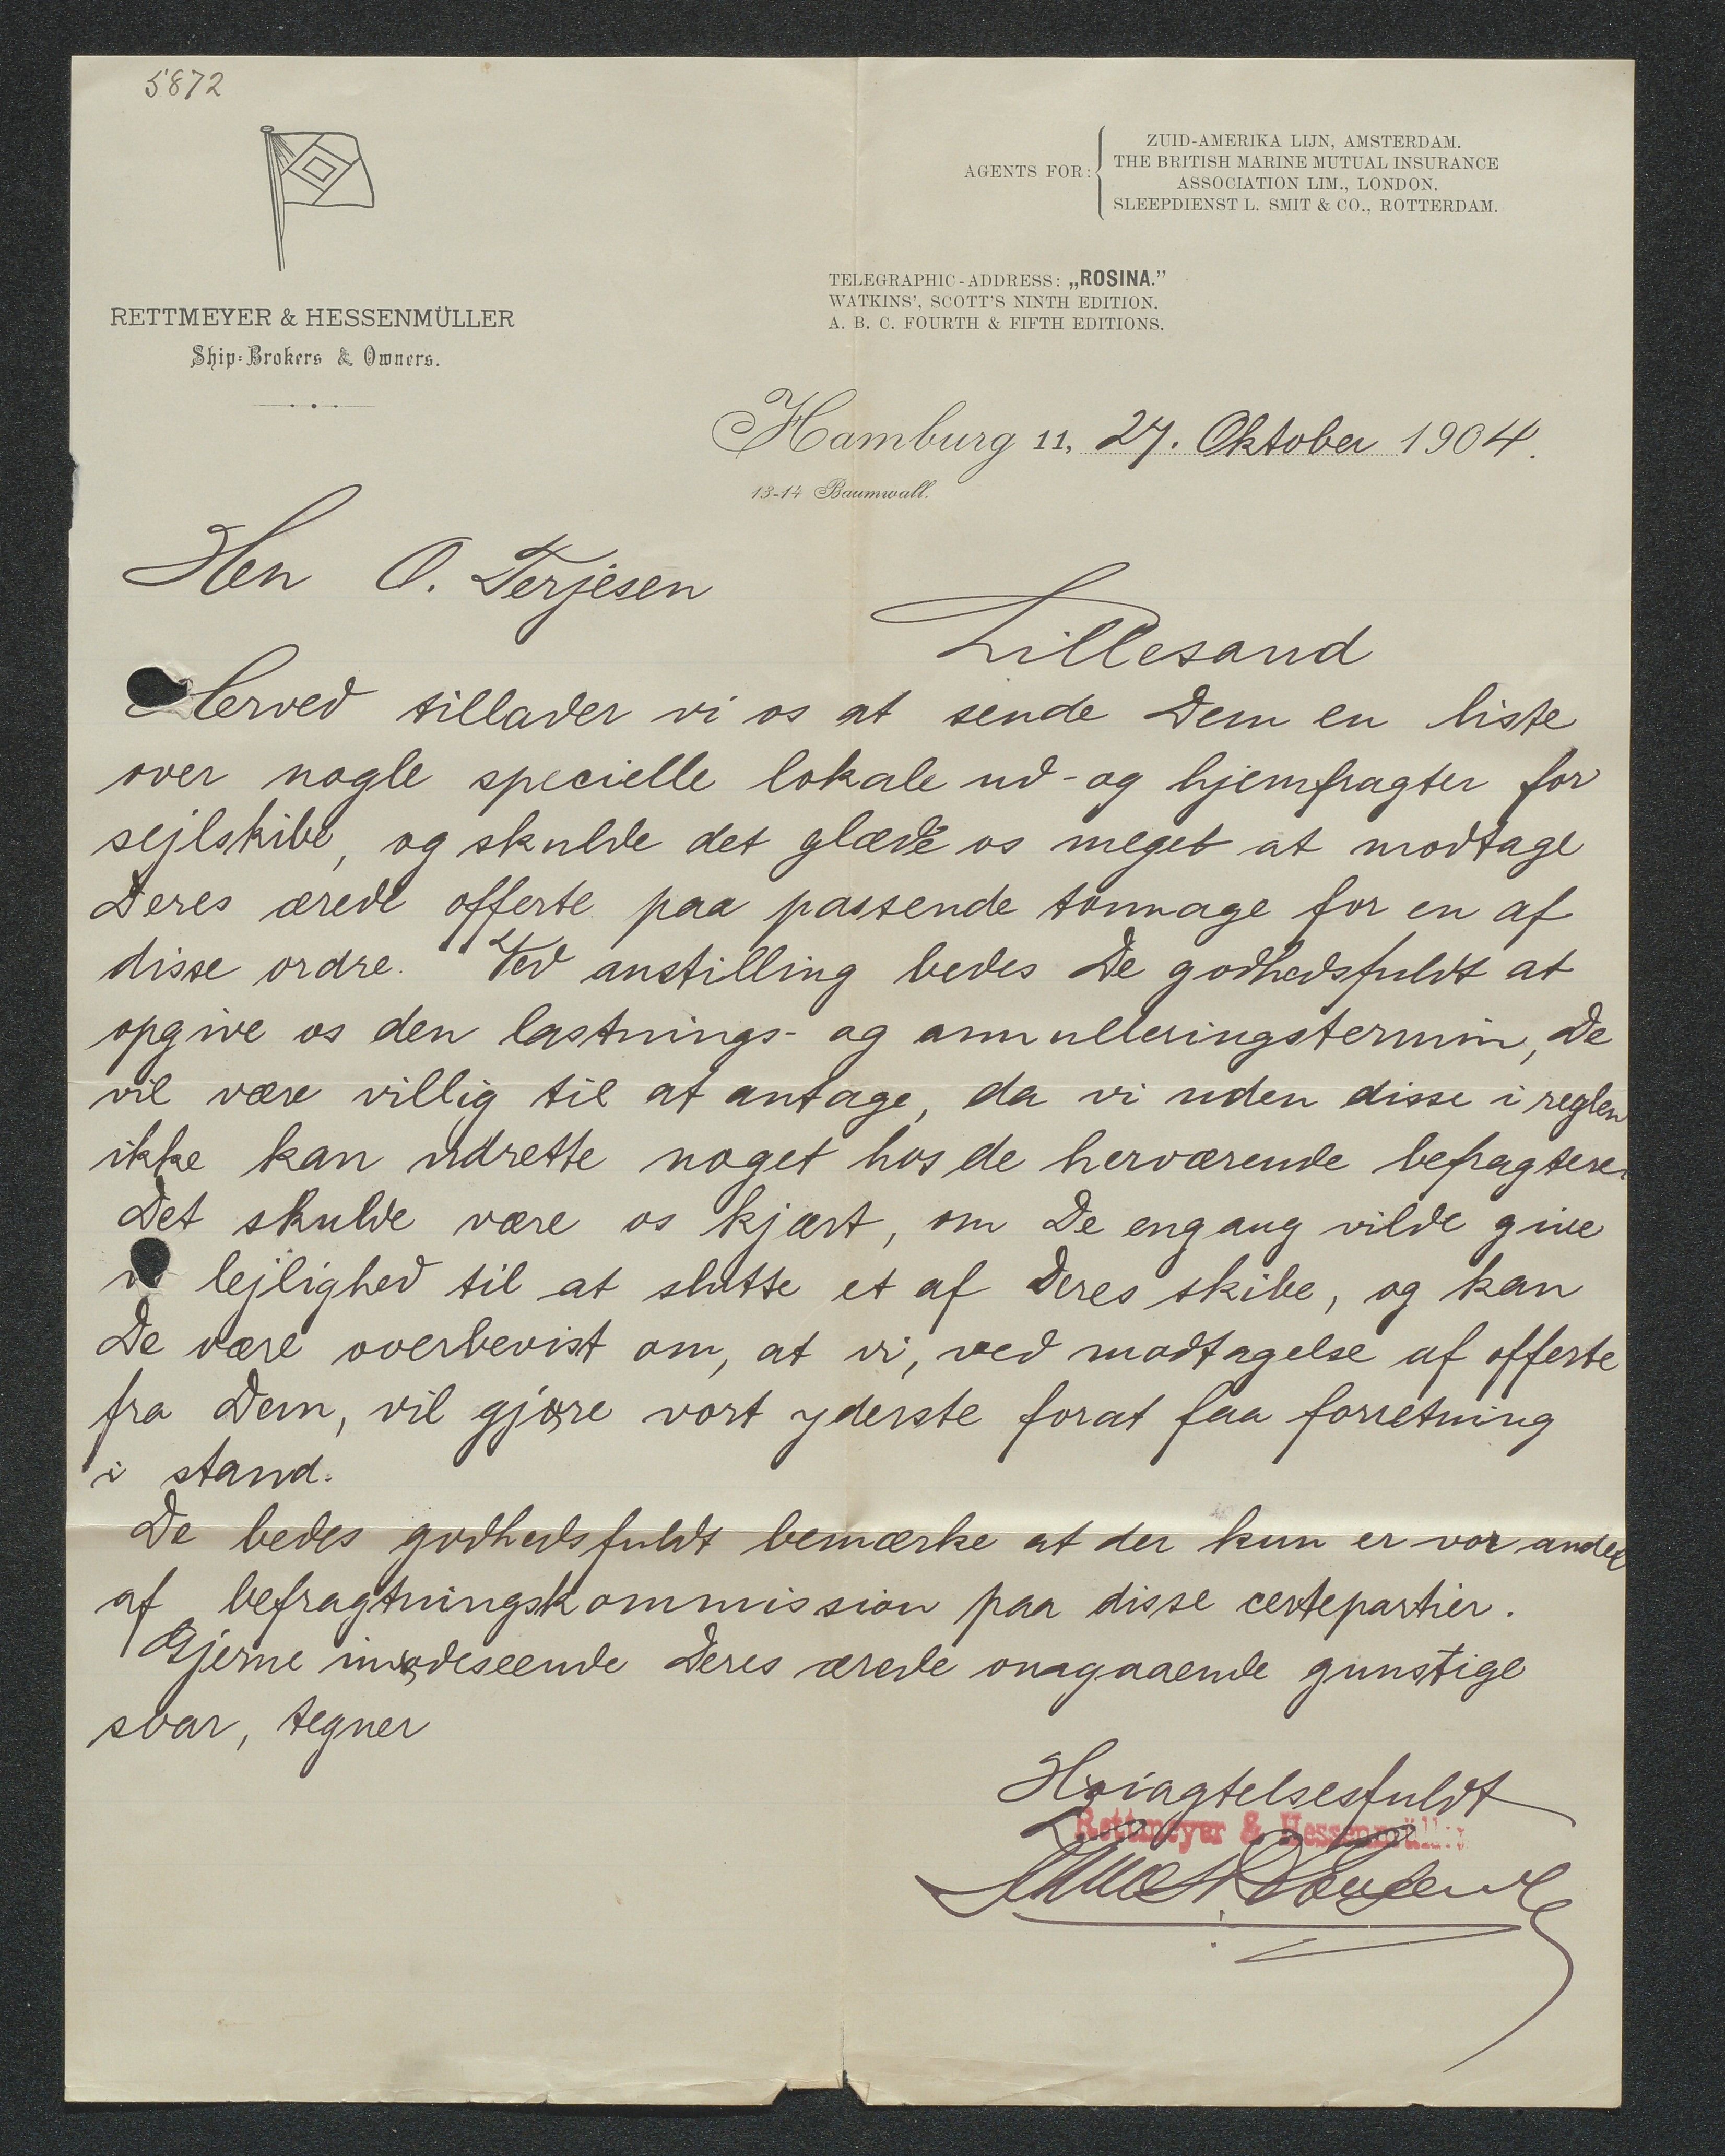 5872
AGENTS FOR:
ZUID-AMERIKA LIJN, AMSTERDAM.
THE BRITISH MARINE MUTUAL INSURANCE
ASSOCIATION LIM., LONDON.
SLEEPDIENST L. SMIT & CO., ROTTERDAM.
TELEGRAPHIC-ADDRESS: „ROSINA."
WATKINS', SCOTT'S NINTH EDITION.
A. B. C. FOURTH & FIFTH EDITIONS.
RETTMEYER & HESSENMÜLLER
Ship-Brokers & Owners.
Hamburg 11, 27. Oktober 1904.
13-14 Baumwall.
Herr O. Terjesen
Lillesand
Herved tillader vi os at sende Dem en liste
over nogle specielle lokale ud- og hjemfragter for
sejlskibe, og skulde det glæde os meget at modtage
Deres ærede offerte paa passende tonnage for en af
disse ordre. Ved anstilling bedes De godhedsfuldt at
opgive os den lastnings- og annulleringstermin, De
vil være villig til at antage, da vi uden disse i reglen
ikke kan udrette noget hos de herværende befragtere.
Det skulde være os kjært, om De engang vilde give
lejlighed til at slutte et af Deres skibe, og kan
De være overbevist om, at vi, ved modtagelse af offerte
fra Dem, vil gjøre vort yderste forat faa forretning
i stand.
De bedes godhedsfuldt bemærke at der kun er vor andel
af befragtningskommission paa disse certepartier.
Gjerne imødeseende Deres ærede omgaaende gunstige
svar, tegner
Høiagtelsesfuldt
Rettmeyer & Hessenmüller